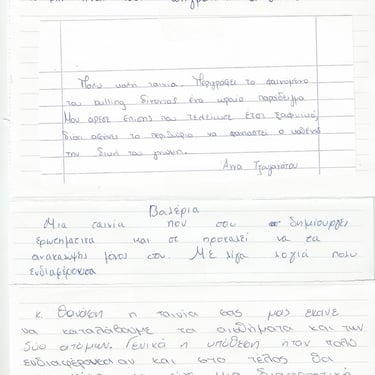 Πολύ καλή ταινία. Περιγράφει το φαινόμενο
του bulling δίνοντας ένα ωραίο παράδειγμα
Μου άρεσε επίσης που τελείωσε έτσι ξαφνικά,
διότι αφήνει το περιθώριο να φανταστεί ο καθένας
την δική του γνώμη.
Βαλέρια
Μια ταινία που σου δημιουργεί
ερωτηματικα και σε προκαλεί να τα
ανακαλύψης μόνος σου. Με λίγα λογιά πολυ
ενδιαφέρουσα
κ. Θανάση η ταινία σας μας έκανε
να καταλάβουμε τα αισθήματα και των
δύο ατόμων. Γενικά η υπόθεση ήταν πολύ
ενδιαφέρουσα αν και στο τέλος θα